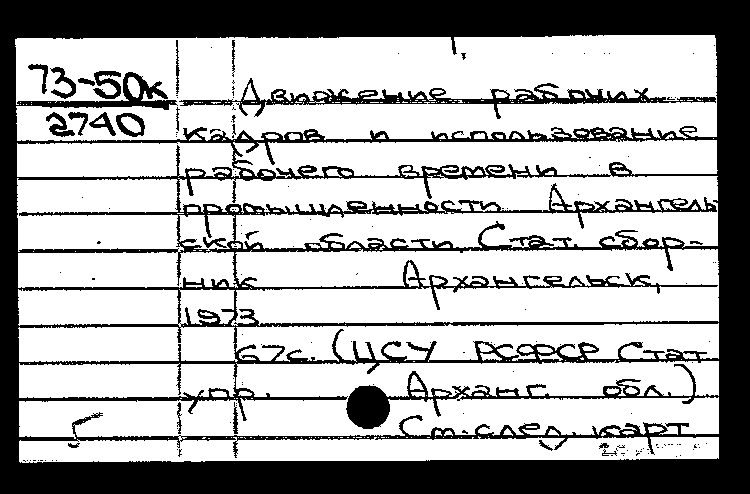 73-50к
2740
Движение рабочих
кадров и использование
рабочего времени в
промышленности Архангель
ской области. Стат. сбор-
ник Архангельск,
1973
67с. (ЦСУ РСФСР Стат
упр. Арханг. обл.)
См.след. карт